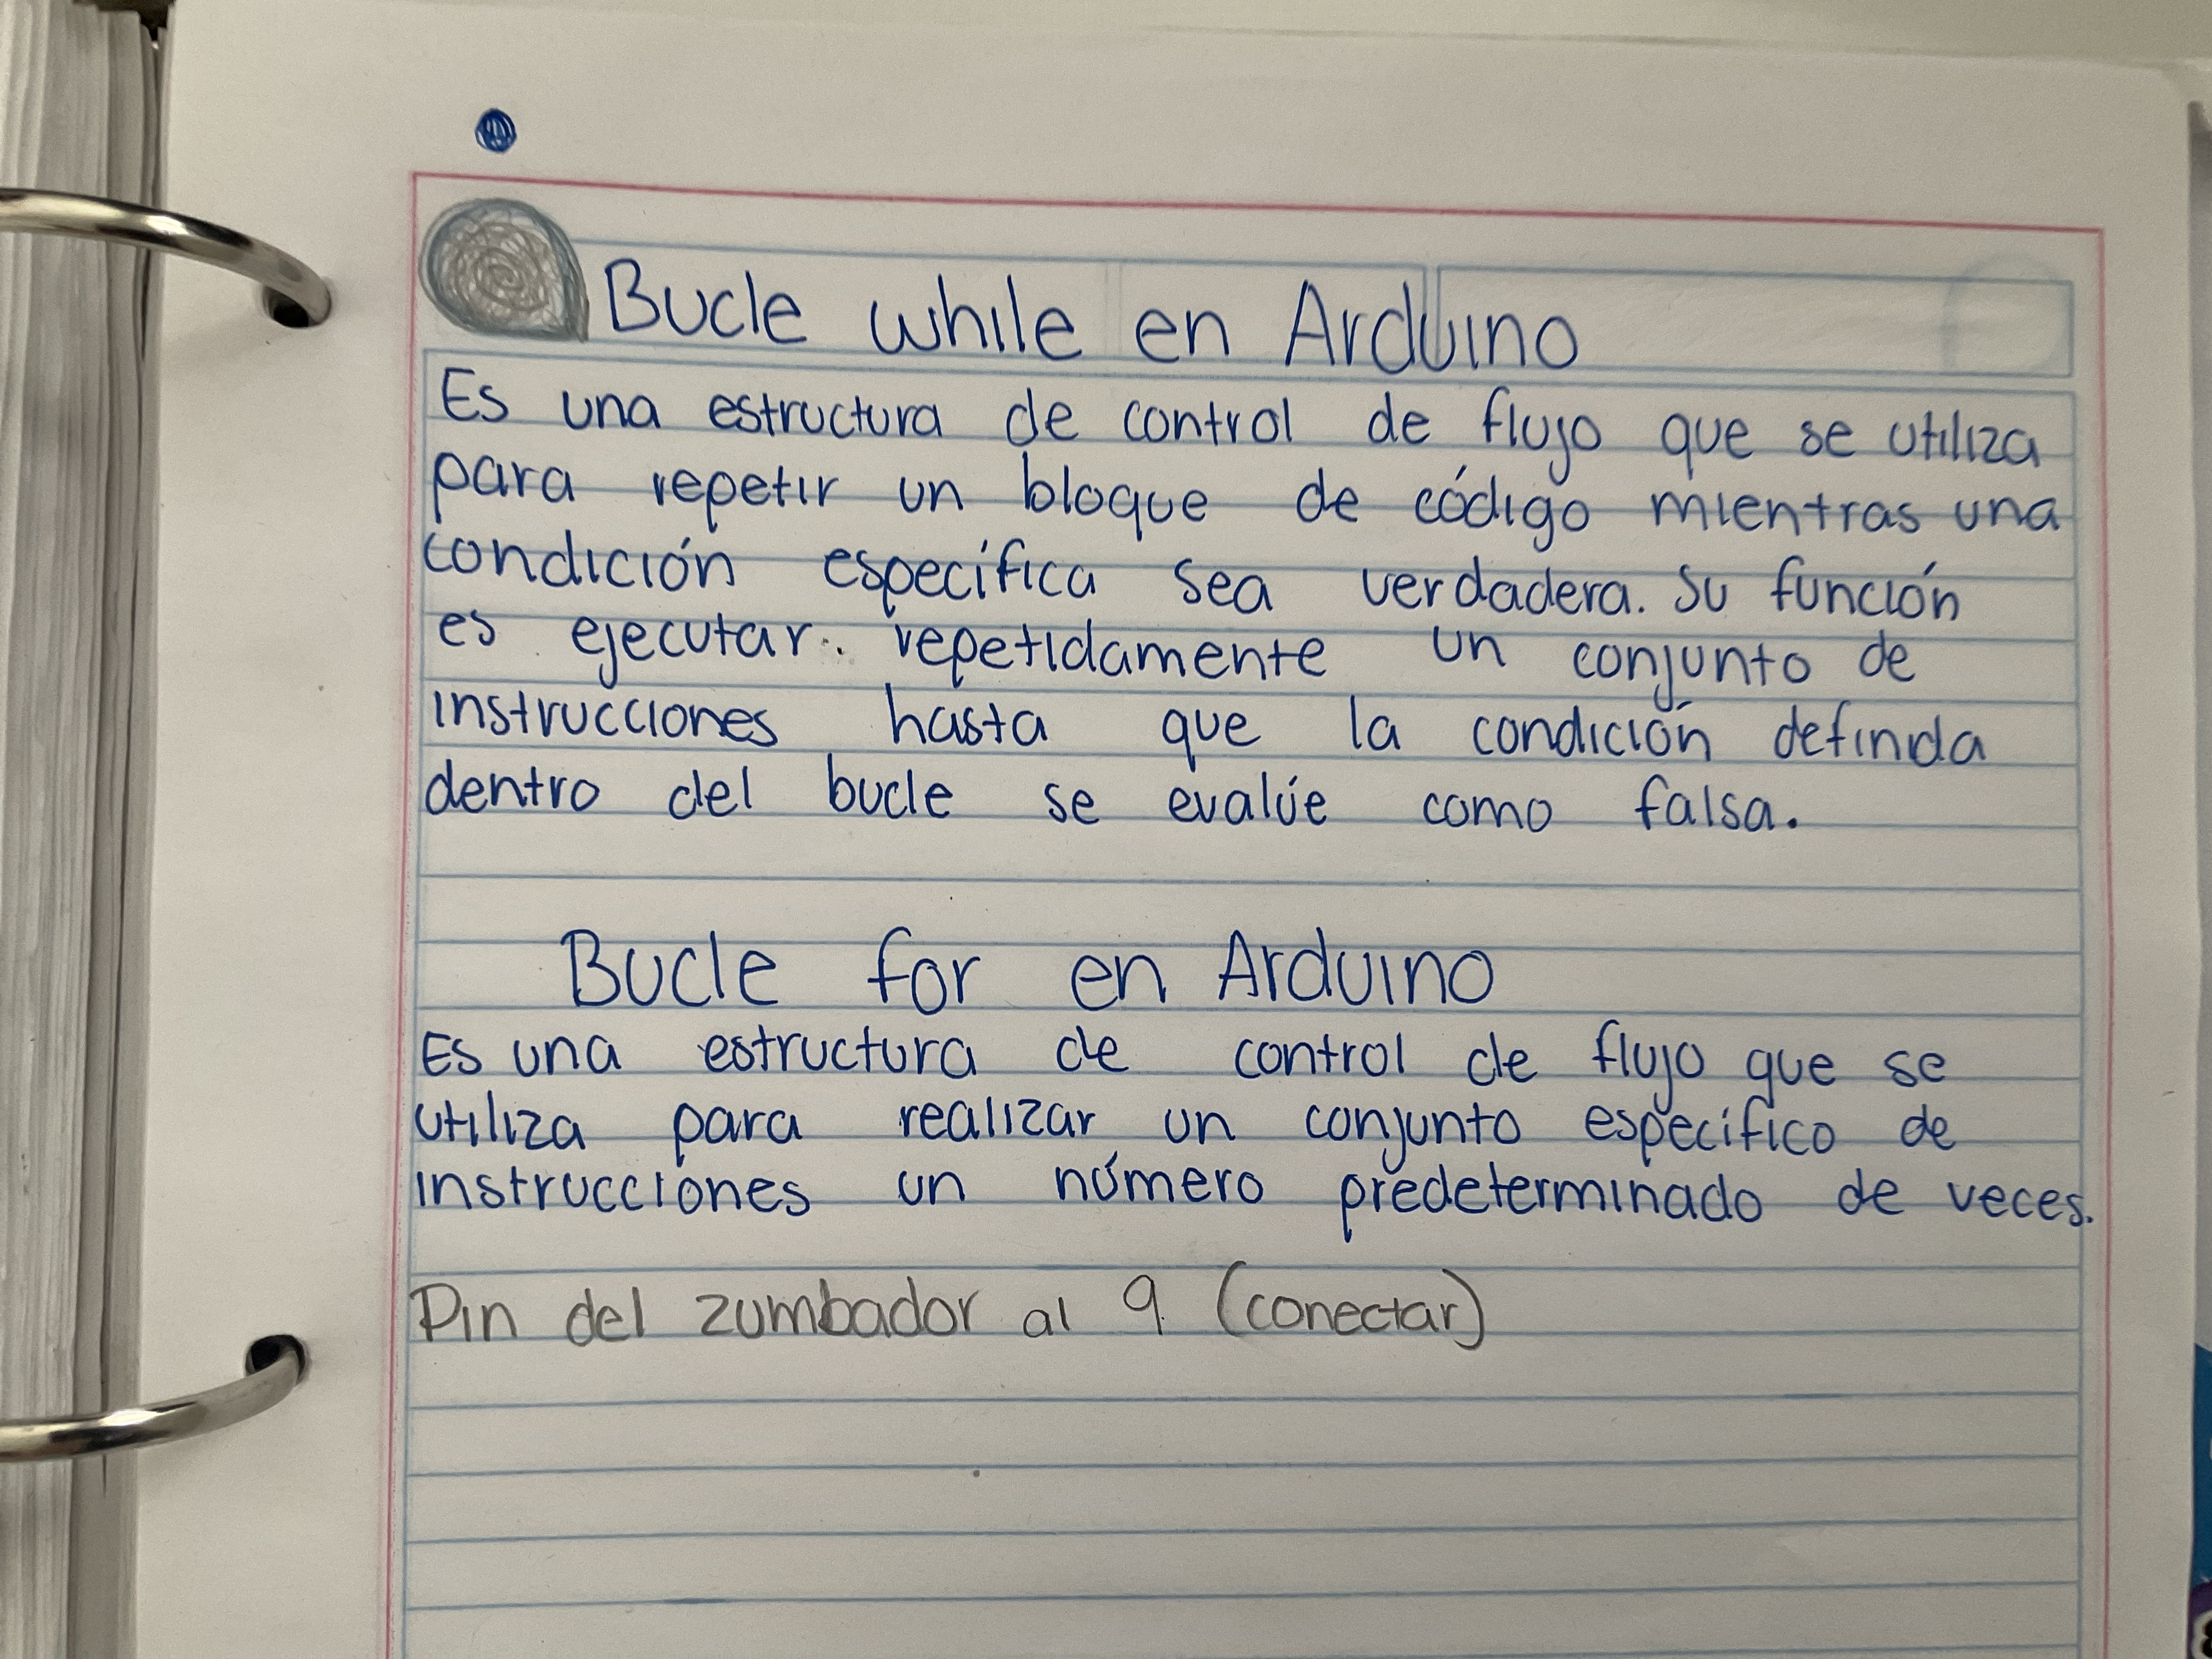 Bucle while en Arduino
Es una estructura de control de flujo que se utiliza
para repetir un bloque de código mientras una
condición específica sea verdadera. Su función
es ejecutar repetidamente un conjunto de
instrucciones hasta que la condición definida
dentro del bucle se evalúe como falsa.
Bucle for en Arduino
Es una estructura de control de flujo que se
utiliza para realizar un conjunto específico de
instrucciones un número predeterminado de veces.
Pin del zumbador al 9 (conectar)